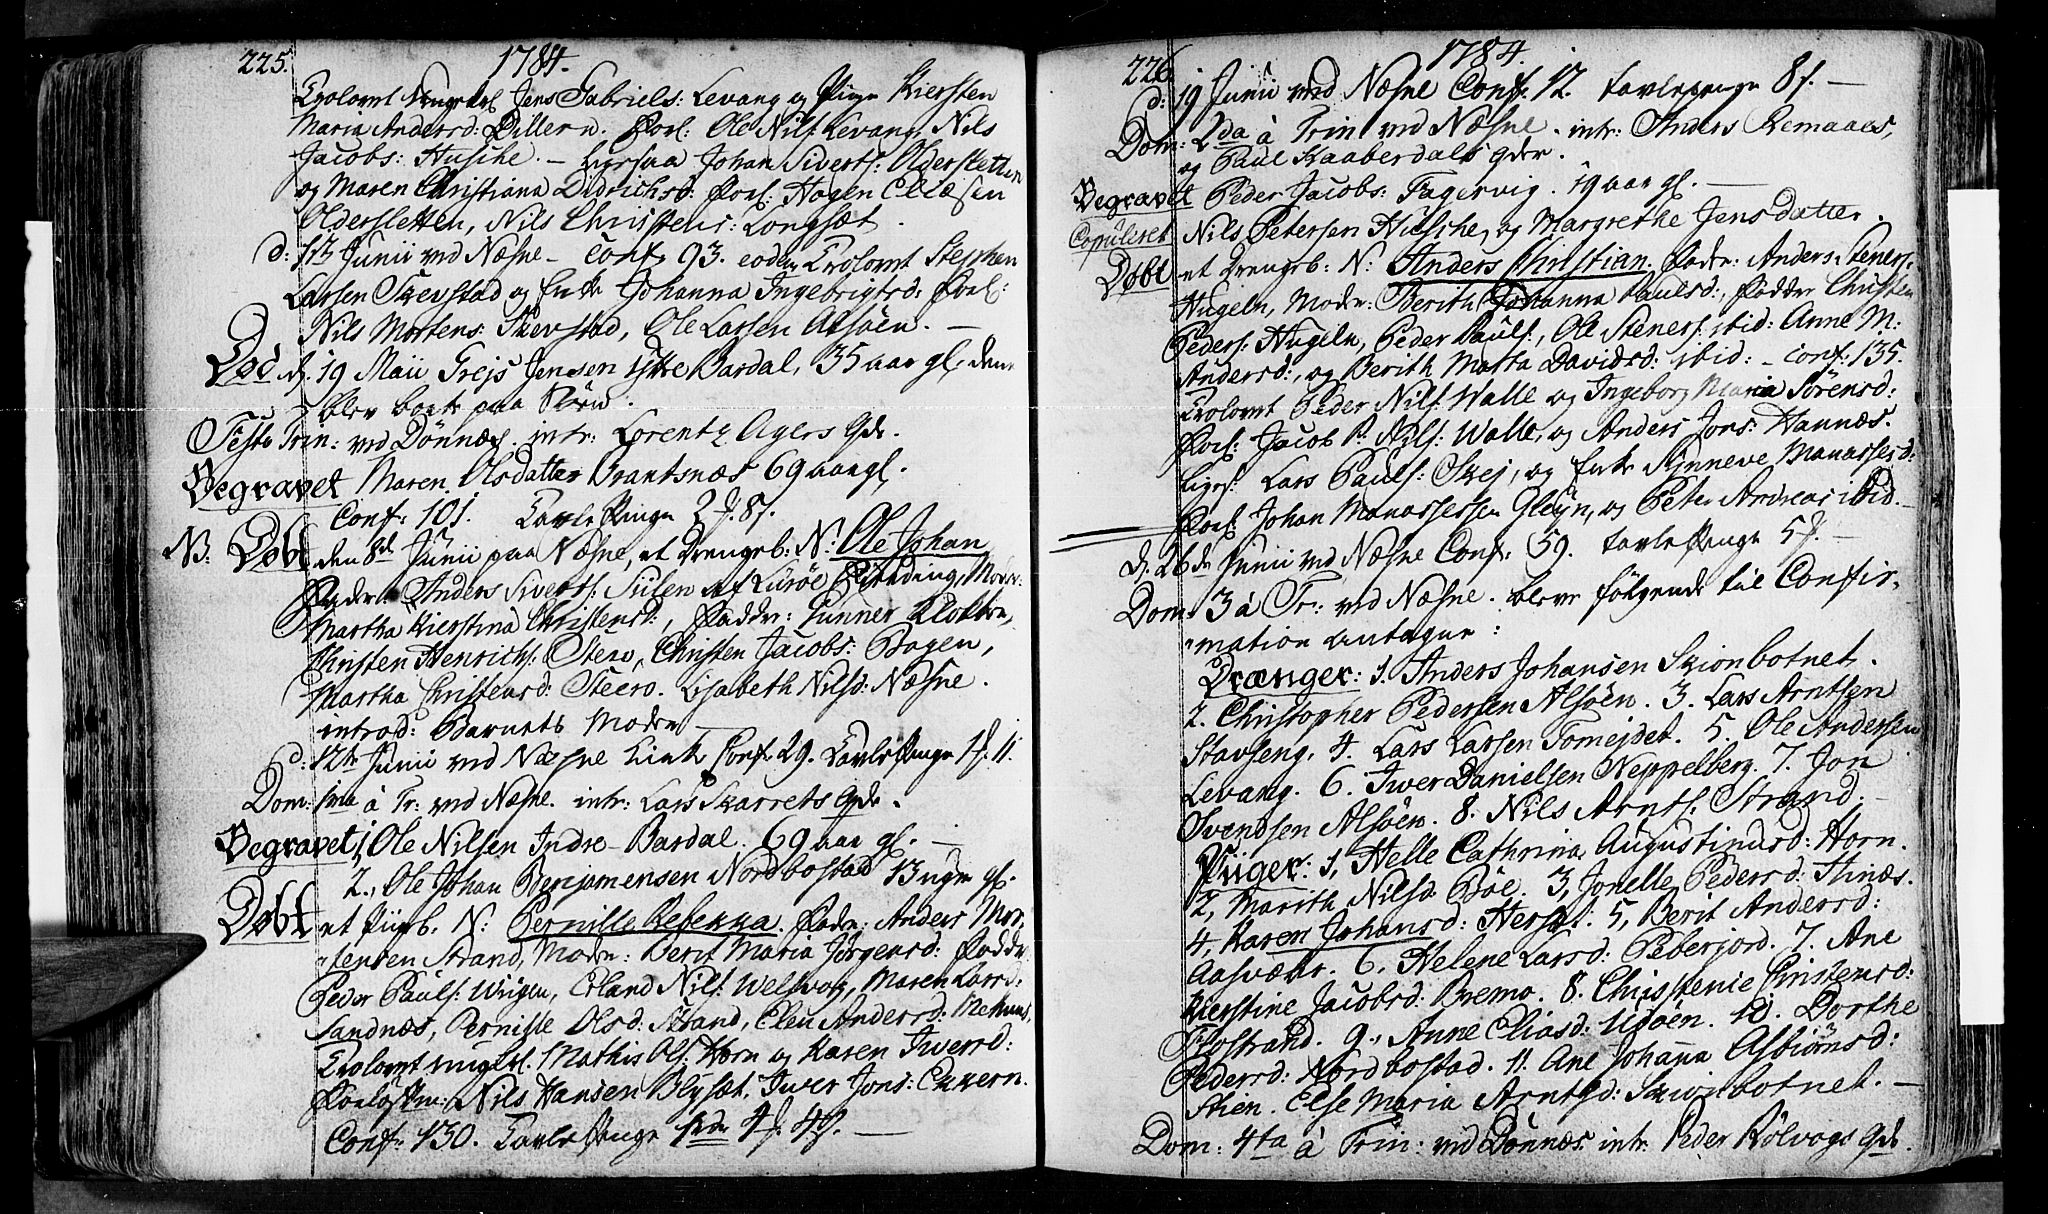 225. 1784.
Trolovet Ungkarl Jens Gabriels: Levang og Pige Kiersten
Maria Andersd: Dillern. Forl: Ole Nils: Levang, Nils
Jacobs: Husche. – Ligesaa Johan Siverts: Oldersletten
og Maren Christiana Didrichsd: Forl: Hagen Ellesen
Oldersletten, Nils Christens: Longsæt.
d: 13 Junii ved Næsne – Conf: 93. eodem Trolovet Stephen
Larsen Skevstad og Enke Johanna Ingebrigtsd: Forl:
Nils Mortens: Skevstad, Ole Larsen Alsöen. –
Död d. 19 Maii Jens Jensen Ytre Bardal, 35 aar gl. denne
blev borte paa Söen.
Festo Trin: ved Dönnæs. intr: Lorentz Agers Qde.
Begravet Maren Olsdatter Brantsnæs 69 aar gl.
Conf: 101. Tavle Penge 2 8
NB: Döbt den 8de Junii paa Næsne, et Drengeb: N: Ole Johan
Fader: Anders Siverts: Siilen af Luröe Moder:
Martha Kierstina Christensd:, Faddr: Gunner Klokker,
Christen Henrichs: Steen, Christen Jacobs: Bagen,
Martha Christensd: Steero. Lisabeth Nilsd: Næsne.
introd: Barnets Moder –
d: 12te Junii ved Næsne Kirke Conf: 29. Tavle Penge 11.
Dom: 1ma à Tr: ved Næsne. intr: Lars Skarrets Qde.
Begravet 1, Ole Nilsen Indre-Bardal. 69 aar gl. –
2., Ole Johan Benjamensen Nordbostad 13 uger gl.
Döbt et Pigeb. N: Pernille Rebekka. Fader: Anders Mor-
tensen Strand, Moder: Berit Maria Jörgensd: Faddr:
Peder Pauls: Wiigen, Erland Nils: Welsvog, Maren Larsd:
Sandnæs, Pernille Olsd: Strand, Elen Andersd:
Trolovet ungkl. Mathis Ols: Horn og Karen Iversd:
Nils Hansen Blysæt, Iver Jons: Ekkern.
Conf: 130. Tavle Penge
226. 1784.
d: 19 Junii ved Næsne Conf: 12. Tavlepenge 8
Dom: 2da à Trin ved Næsne. intr: Anders Remaaes,
og Paul Kaaberdals Qder.
Begravet Peder Jacobs: Fagervig. 19 aar gl. –
Copuleret Nils Petersen Husche, og Margrethe Jens datter.
Döbt et Drengeb: N: Anders Christian. Fader: Anders Steners:
Hugeln, Moder: Berith Johanna Paulsd:, Faddr Christen
Peders: Hugeln, Peder Pauls:, Ole Steners: ibid: Anne M:
Andersd:, og Berith Marta Davidsd: ibid: – Conf: 135.
Trolovet Peder Nils: Walle og Ingeborg Maria Sörensd:
Forl: Jacob P. Nils: Walle, og Anders Jons: Hannæs.
Liges: Lars Pauls: Skej, og Enke Synneve Manassesd:
Forl: Johan Manassessen Gleyn, og Peter Andreas: ibid. –
d. 26de Junii ved Næsne Conf: 59. Tavle Penge 5
Dom: 3 à Tr: ved Næsne. bleve fölgende til Confir-
mation antagne:
Drænger: 1. Anders Johansen Skionbotnet.
2. Christopher Pedersen Alsöen. 3. Lars Arntsen
Stavseng. 4. Lars Larsen Tomejdet. 5. Ole Andersen
Levang. 6. Iwer Danielsen Neppelberg. 7. Jon
Svendsen Alsöen. 8. Nils Arnts: Strand. –
Piiger: 1, Helle Cathrina Augustinusd: Horn.
2, Marith Nilsd: Böe. 3, Jonelle Pedersd: Stinæs.
4. Karen Johansd: 5, Berit Andersd:
Aasvær. 6. Helene Larsd: Peberjord. 7. Ane
Kierstine Jacobsd: Bremo. 8. Christenie Christensd:
Flostrand. 9., Anne Eliasd: Ugöen. 10. Dorthe
Pedersd: Nordbostad. 11. Ane Johanna Asbiörnsd:
Stien. Else Maria Arntsd: Skionbotnet. –
Dom: 4ta à Trin: ved Dönnæs intr: Peder Rölvogs Qde.